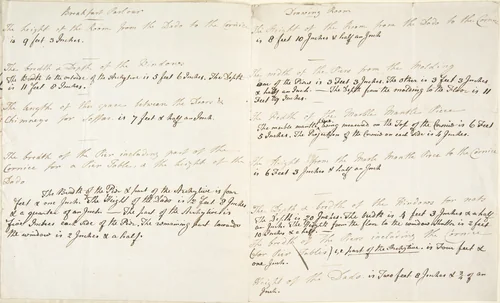 Breakfast Parlour
The height of the Room from the Dado to the Cornice
is 9 feet 3 Inches.
The breadth & Depth of the Windows
The Width to the outside of the Architrave is 5 feet 6 Inches. The Depth
is 11 feet 8 Inches.
The length of the space between the Doors &
Chimney for Soffas. is 7 feet & half an Inch.
The breadth of the Pier including part of the
Cornice for a Pier Table, & the height of the
Dado
The Width of the Pier & part of the Architrave is four
feet & one Inch. The Height of the Dado is 2 feet 8 Inches
& a quarter of an Inch. — The part of the Architrave is
five Inches each side of the Pier. The remaining part towards
the window is 2 Inches & a half.
Drawing Room
The Height of the Room from the Dado to the Cornice
is 8 feet 10 Inches & half an Inch
The width of the Piers from the Molding
one of the Piers is 3 Feet 3 Inches. The other is 3 feet 3 Inches
& half an Inch — The Depth from the molding to the Floor is 11
Feet Inches.
The Width of the Marble Mantle Piece
The marble mantle piece being measured on the Top of the Cornice is 6 Feet
5 Inches. The Projection of the Cornice on each Side is Inches.
The Height from the Marble Mantle Piece to the Cornice
is 6 Feet 3 Inches & half an Inch
The Depth & breadth of the Windows for seats
The Depth is 20 Inches. The width is 4 feet 3 Inches & a half
an Inch. The Height from the floor to the window Shutter is 2 feet
10 Inches & a half.
The breadth of the Piers including the Cornice
(for Pier Tables) i.e. part of the Architrave. is Four feet &
one Inch.
Height of the Dado is Two feet 8 Inches & 3/4 of an
Inch.